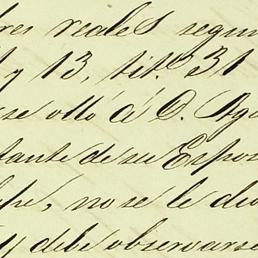 res reales segun
y 13, tit.o 31
se ottó á D. Ag
tante de su Espos
pe, no se le dio
y debe observarse